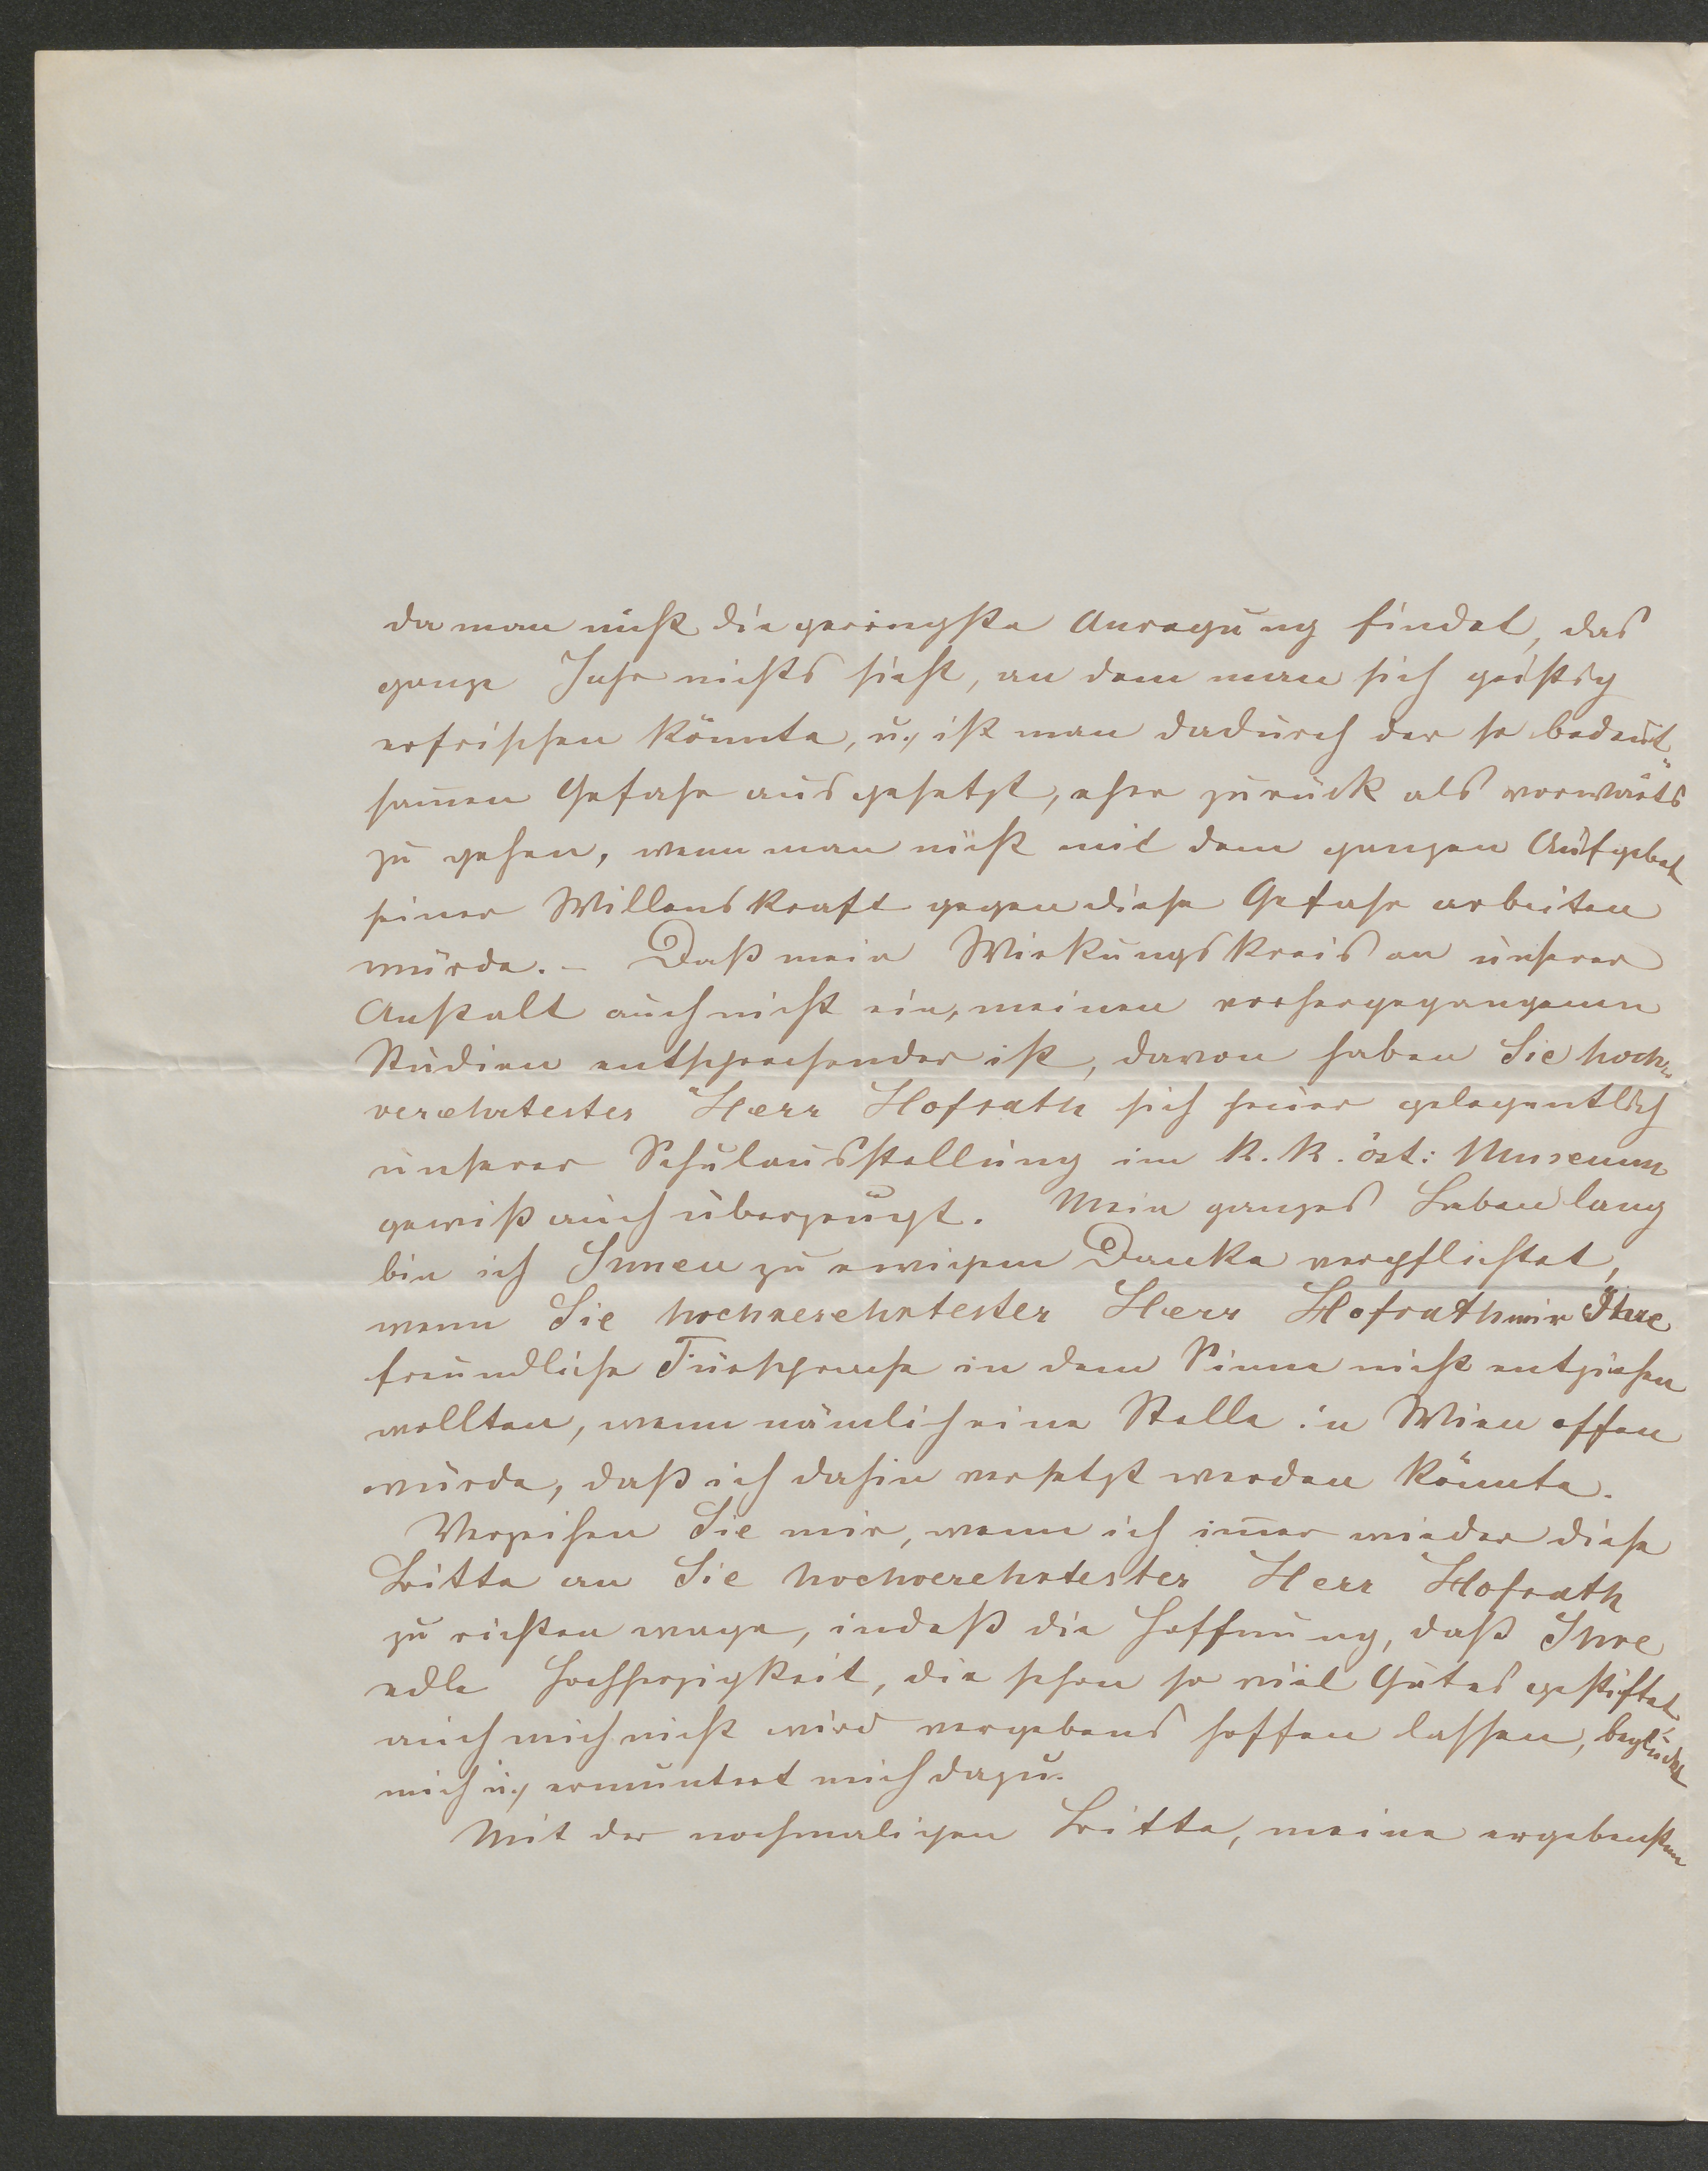 da man nicht die geringste Anregung findet, das
ganze Jahr nichts sieht, an dem man sich geistig
erfrischen könnte, u. ist man dadurch der so bedeut„
samen Gefahr ausgesetzt, eher zurück als vorwärts
zu gehen, wenn man nicht mit dem ganzen Aufgebot
seiner Willenskraft gegen diese Gefahr arbeiten
würde. – Daß mein Wirkungskreis an unserer
Anstalt auch nicht ein, meinen vorhergegangenen
Studien entsprechender ist, davon haben Sie hoch„
verehrtester Herr Hofrath sich heuer gelegentlich
unserer Schulausstellung im k. k. öst: Museum
gewiß auch überzeugt. Mein ganzes Leben lang
bin ich Ihnen zu ewigem Danke verpflichtet,
wenn Sie hochverehrtester Herr Hofrath mir Ihre
freundliche Fürsprache in dem Sinne nicht entziehen
wollten, wenn nämlich eine Stelle in Wien offen
würde, daß ich dahin versetzt werden könnte.
Verzeihen Sie mir, wenn ich im̄er wieder diese
Bitte an Sie hochverehrtester Herr Hofrath
zu richten wage, indeß die Hoffnung, daß Ihre
edle Hochherzigkeit, die schon so viel Gutes gestiftet,
auch mich nicht wird vergebens hoffen lassen, beglückt
mich u. ermuntert mich dazu.
Mit der nochmaligen Bitte, meine ergebensten